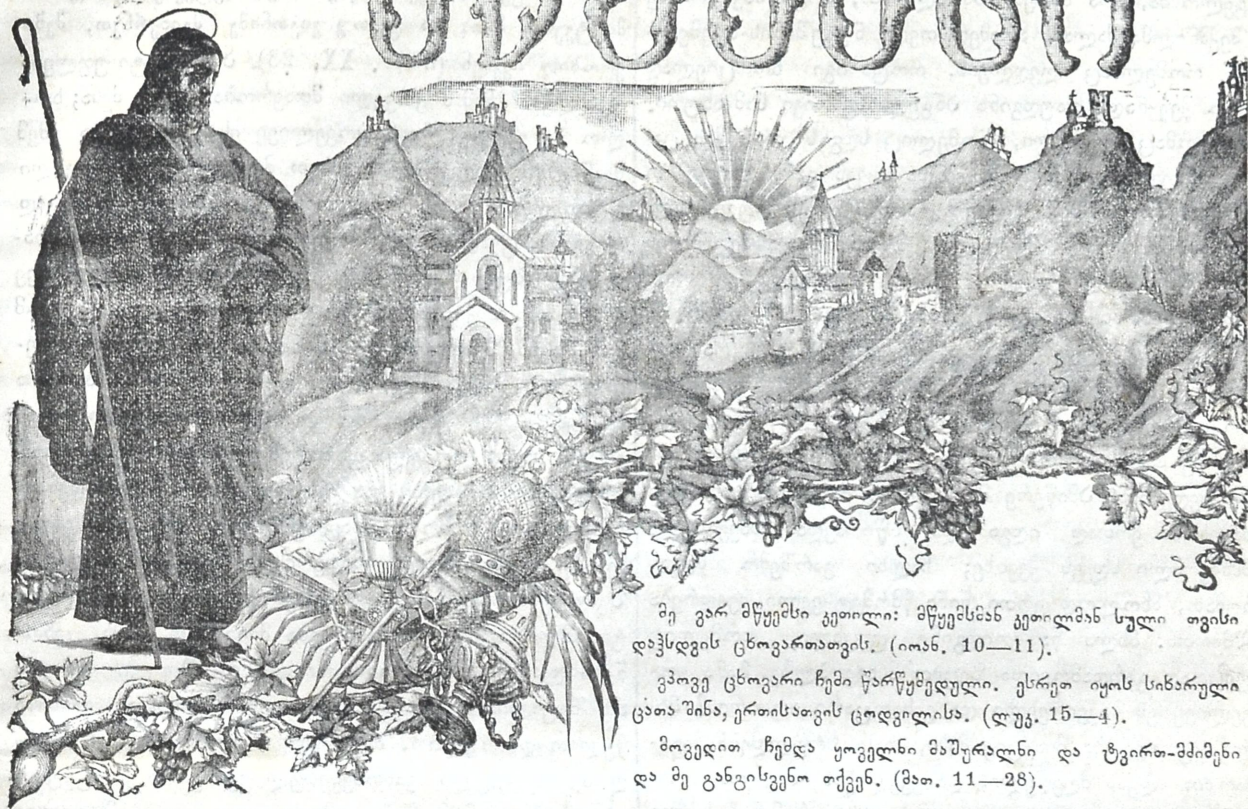 მე ვარ მწყემსი კეთილი: მწყემსმან კეთილმან სული თვისი
დაჰსდგის ცხოვართათვის. (იოან. 10—11).
ვპოვე ცხოვარი ჩემი წარწყმედული. ესრეთ იყოს სიხარული
ცათა შინა, ერთისათვის ცოდვილისა. (ლუკ. 15—4).
მოვედით ჩემდა ყოველნი მაშურალნი და ტვირთ-მძიმენი
და მე განგისვენო თქვენ. (მათ. 11—28).